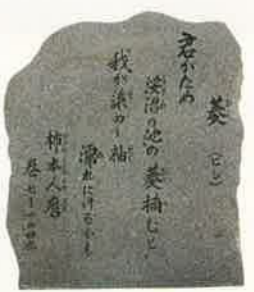 菱 (ヒシ)
君がため
浮沼の池の菱摘むと
我が染めし袖
濡れにけるかも
柿本人麿